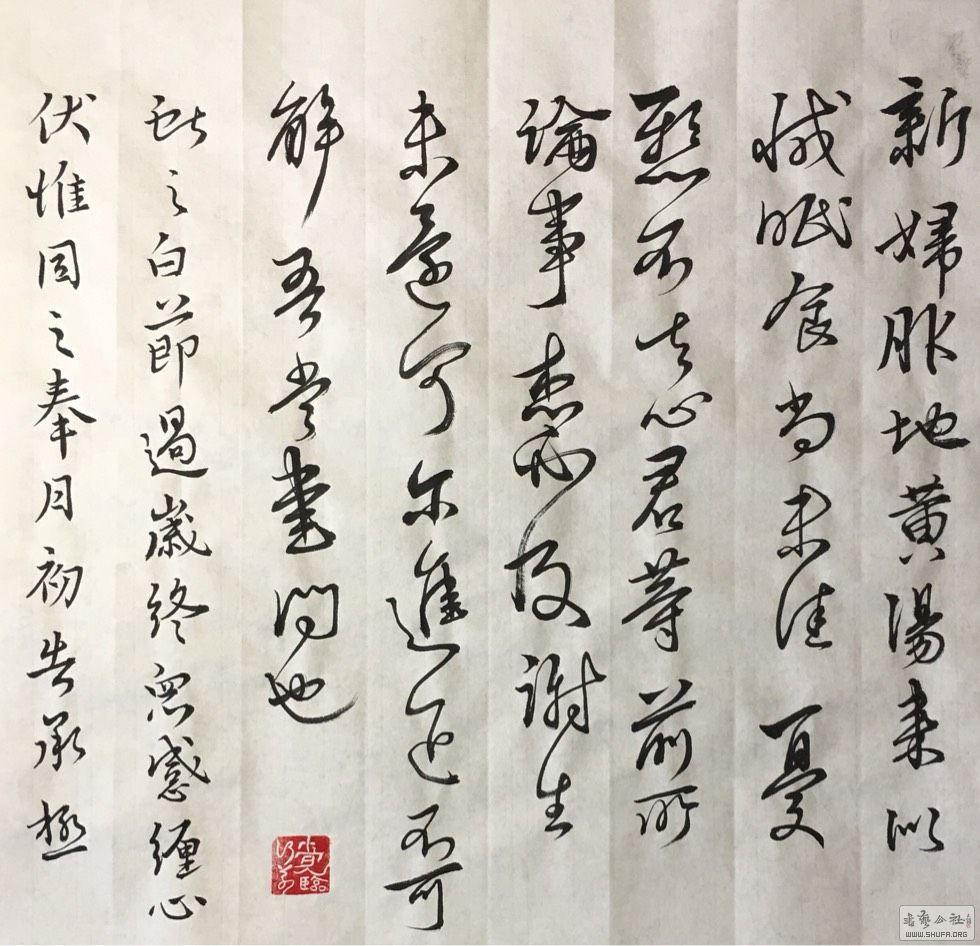 新婦服地黄湯来似
減眠食尚未佳憂
懸不去心君等前所
論事想必及謝生
未還何尔進退不可
解吾當書問也
獻之白節過歲終眾感纏心
伏惟同之奉月初告承極
书艺公社
WWW.SHUFA.ORG